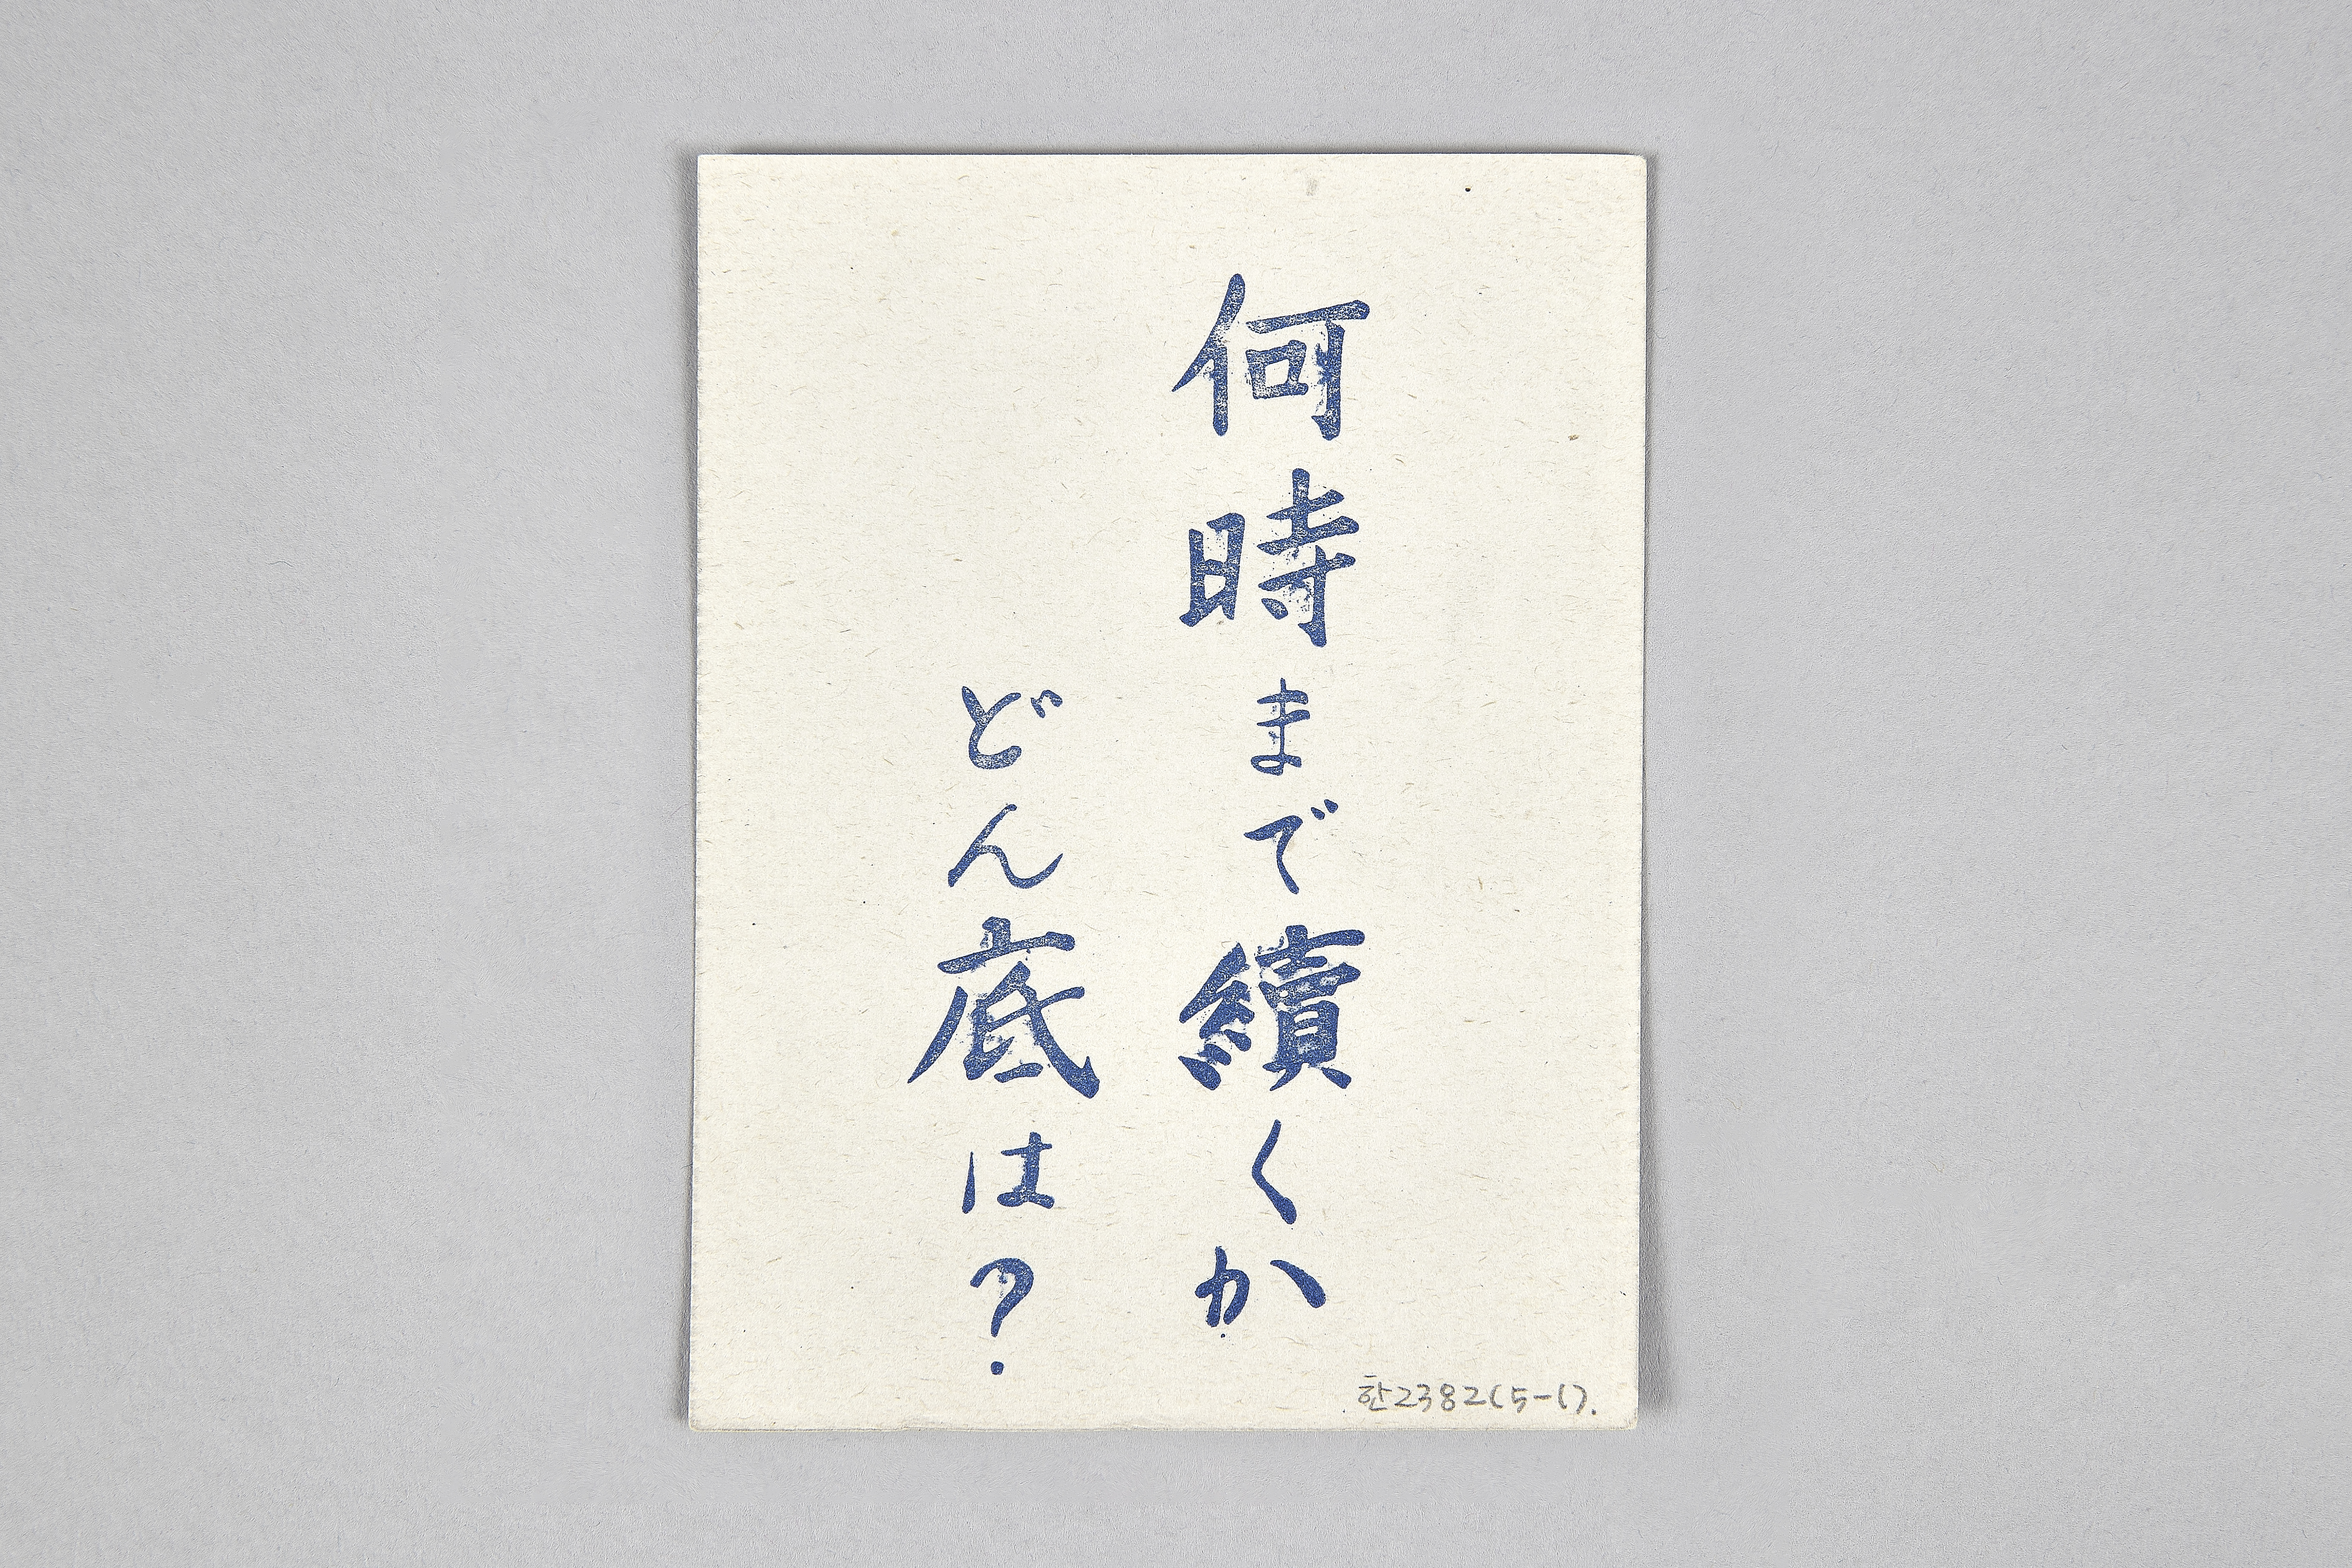 何時まで續くか
どん底は?
한2382(5-1).